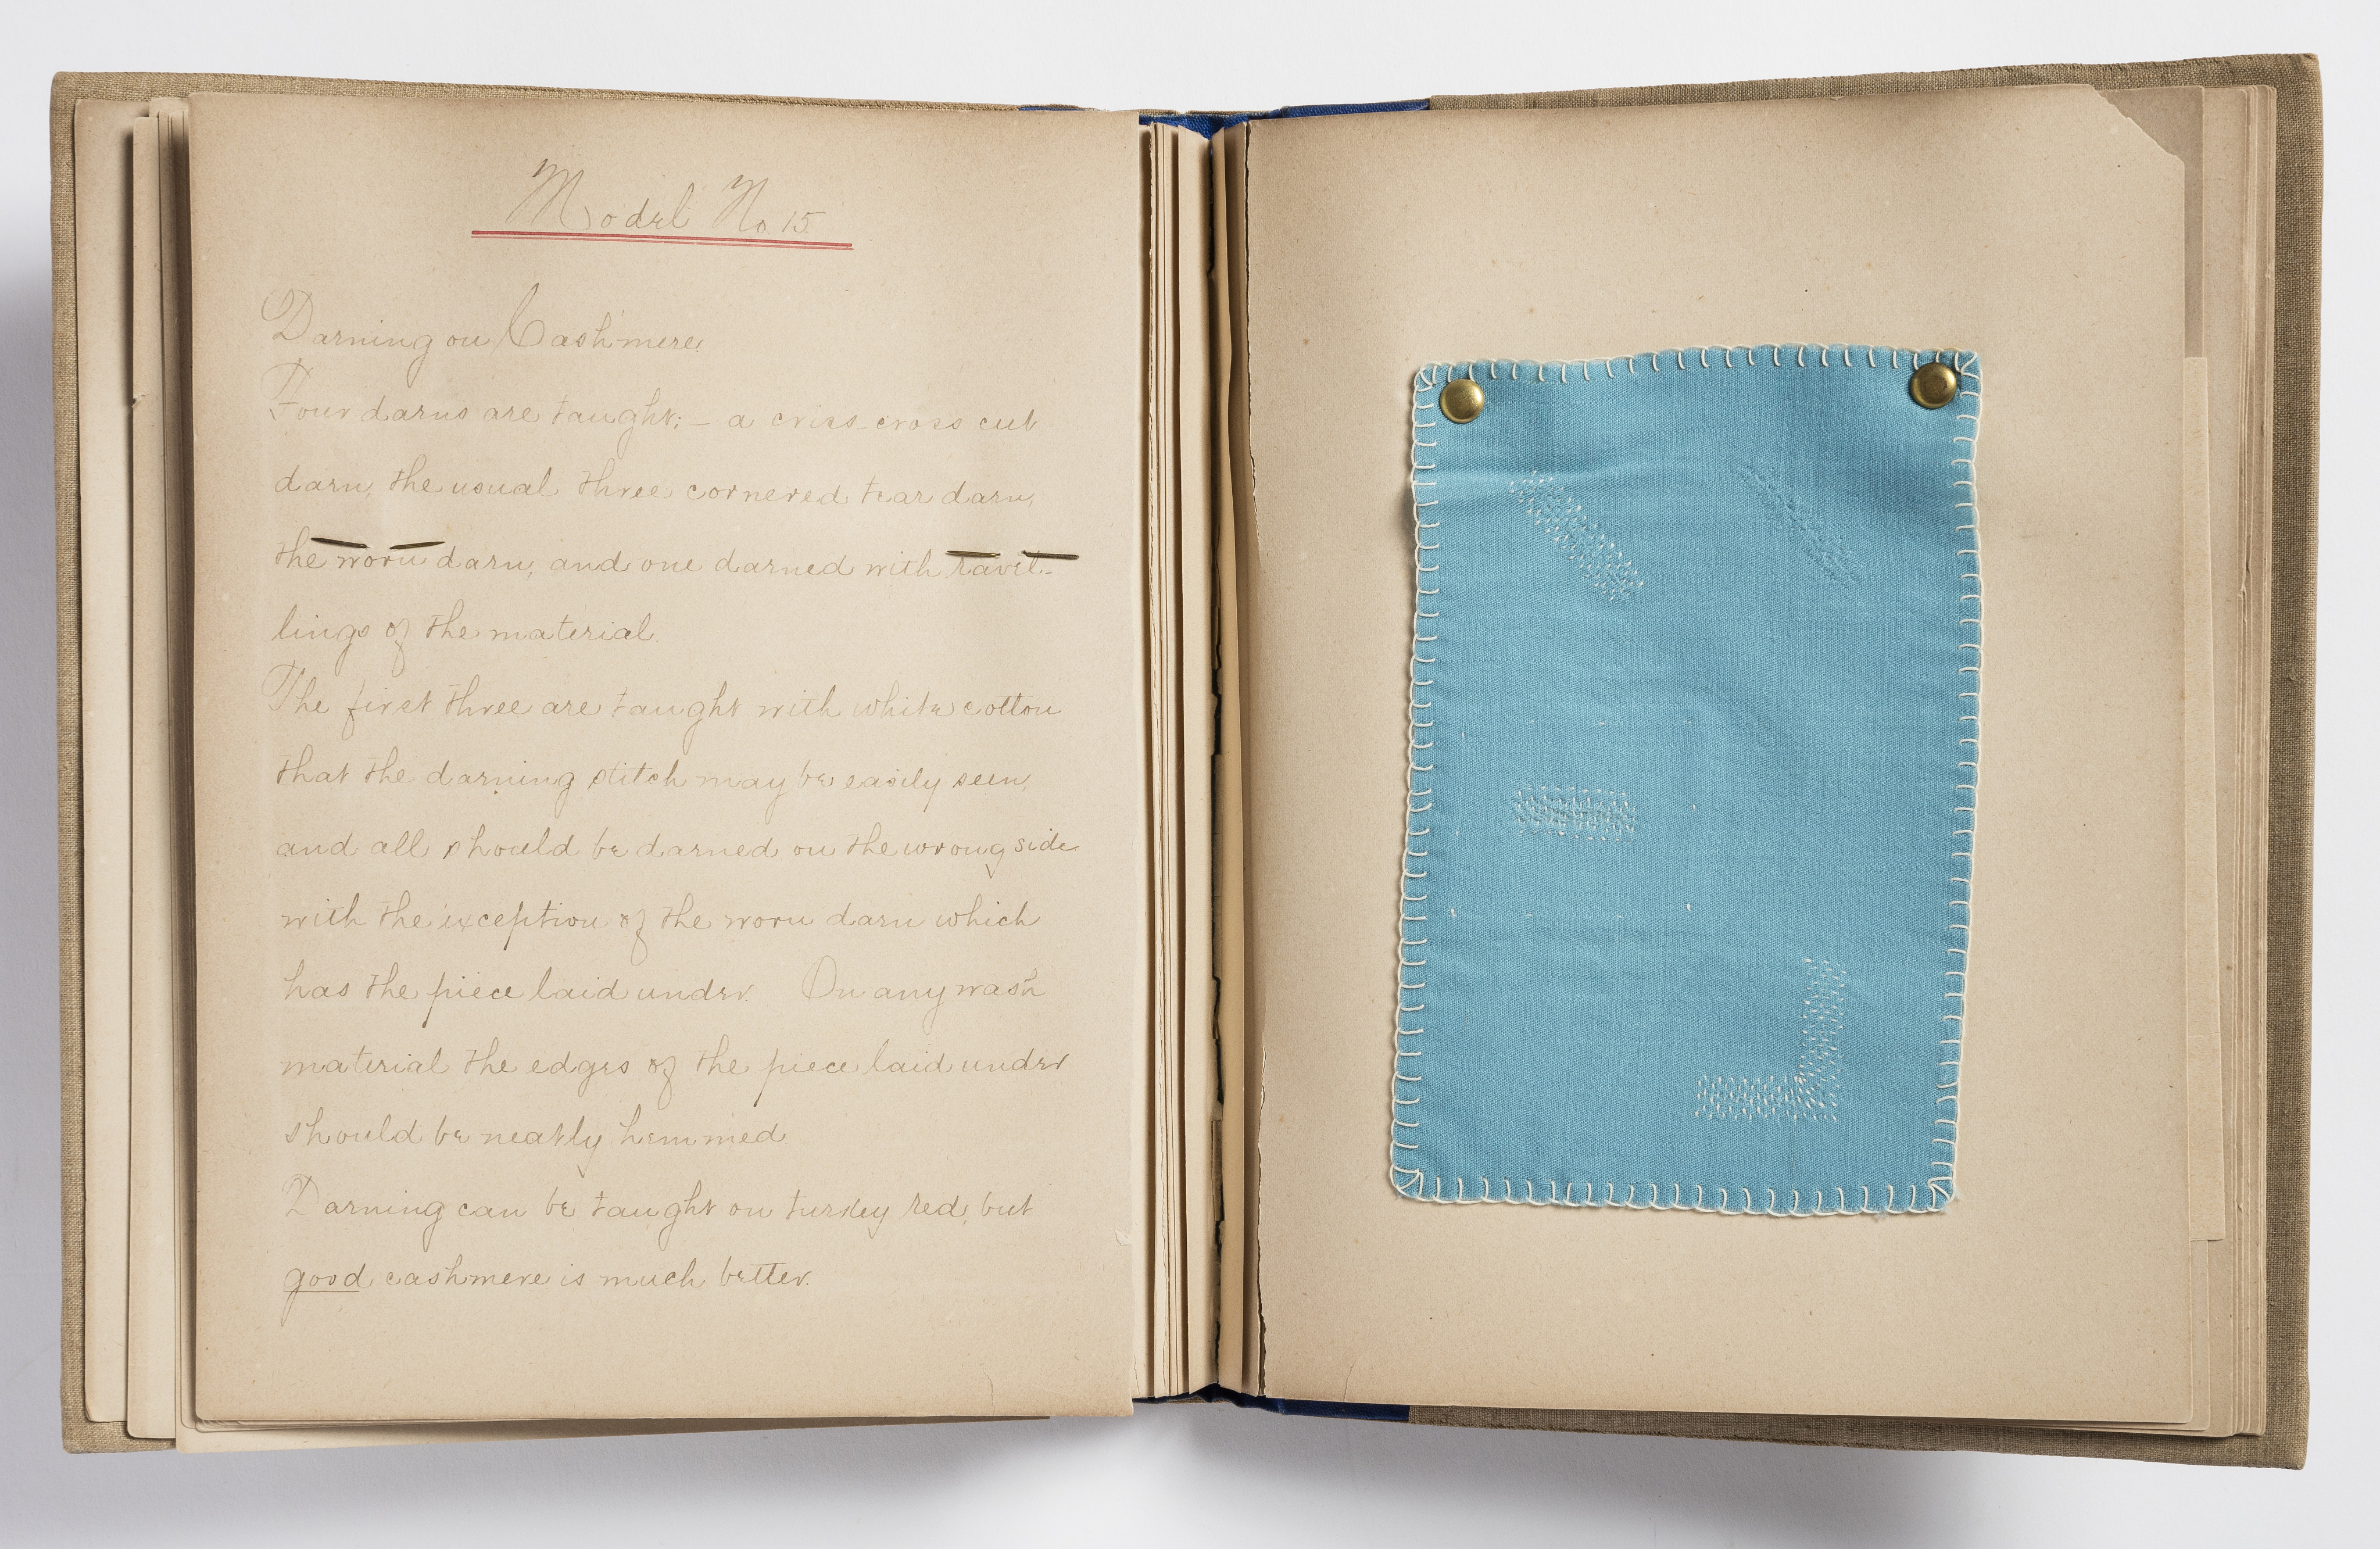 Model No. 15.
Darning on Cashmere.
Four darns are taught; – a criss-cross cut
darn, the usual three cornered tear darn,
the worn darn, and one darned with ravel-
lings of the material.
The first three are taught with white cotton
that the darning stitch may be easily seen,
and all should be darned on the wrong side
with the exception of the worn darn which
has the piece laid under. On any wash
material the edges of the piece laid under
should be neatly hemmed
Darning can be taught on turkey red, but
good cashmere is much better.